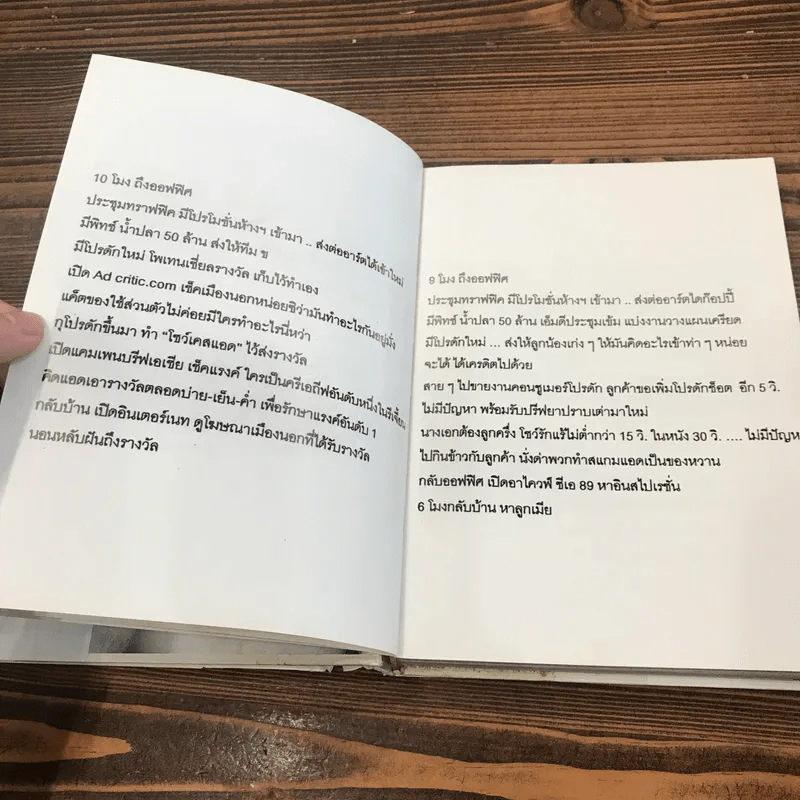 10 โมง ถึงออฟฟิศ
ประชุมทราฟฟิค มีโปรโมชั่นห้างฯ เข้ามา .. ส่งต่ออาร์ตได้เข้าใหม่
มีพิทช์ น้ำปลา 50 ล้าน ส่งให้ทีม ข
มีโปรดักใหม่ โพเทนเชี่ยลรางวัล เก็บไว้ทำเอง
เปิด Ad critic.com เช็คเมืองนอกหน่อยซิว่ามันทำอะไรกันอยู่มั่ง
แค็ตของใช้ส่วนตัวไม่ค่อยมีใครทำอะไรนี่หว่า
กูโปรดักขึ้นมา ทำ “โชว์เคสแอด” ไว้ส่งรางวัล
เปิดแคมเพนบรีฟเอเชีย เช็คแรงค์ ใครเป็นครีเอถีฟอันดับหนึ่งในรีเจี้ยน
คิดแอดเอารางวัลตลอดบ่าย-เย็น-ค่ำ เพื่อรักษาแรงค์อันดับ 1
กลับบ้าน เปิดอินเตอร์เนท ดูโฆษณาเมืองนอกที่ได้รับรางวัล
นอนหลับฝันถึงรางวัล
9 โมง ถึงออฟฟิศ
ประชุมทราฟฟิค มีโปรโมชั่นห้างฯ เข้ามา .. ส่งต่ออาร์ตไดก๊อปปี้
มีพิทช์ น้ำปลา 50 ล้าน เอ็มดีประชุมเข้ม แบ่งงานวางแผนเครียด
มีโปรดักใหม่ ... ส่งให้ลูกน้องเก่ง ๆ ให้มันคิดอะไรเข้าท่า ๆ หน่อย
จะได้ ได้เครดิตไปด้วย
สาย ๆ ไปขายงานคอนซูเมอร์โปรดัก ลูกค้าขอเพิ่มโปรดักช็อต อีก 5 วิ.
ไม่มีปัญหา พร้อมรับบรีฟยาปราบเต่ามาใหม่
นางเอกต้องลูกครึ่ง โชว์รักแร้ไม่ต่ำกว่า 15 วิ. ในหนัง 30 วิ. .... ไม่มีปัญห
ไปกินข้าวกับลูกค้า นั่งด่าพวกทำสแกมแอดเป็นของหวาน
กลับออฟฟิศ เปิดอาไควฟ์ ซีเอ 89 หาอินสไปเรชั่น
6 โมงกลับบ้าน หาลูกเมีย